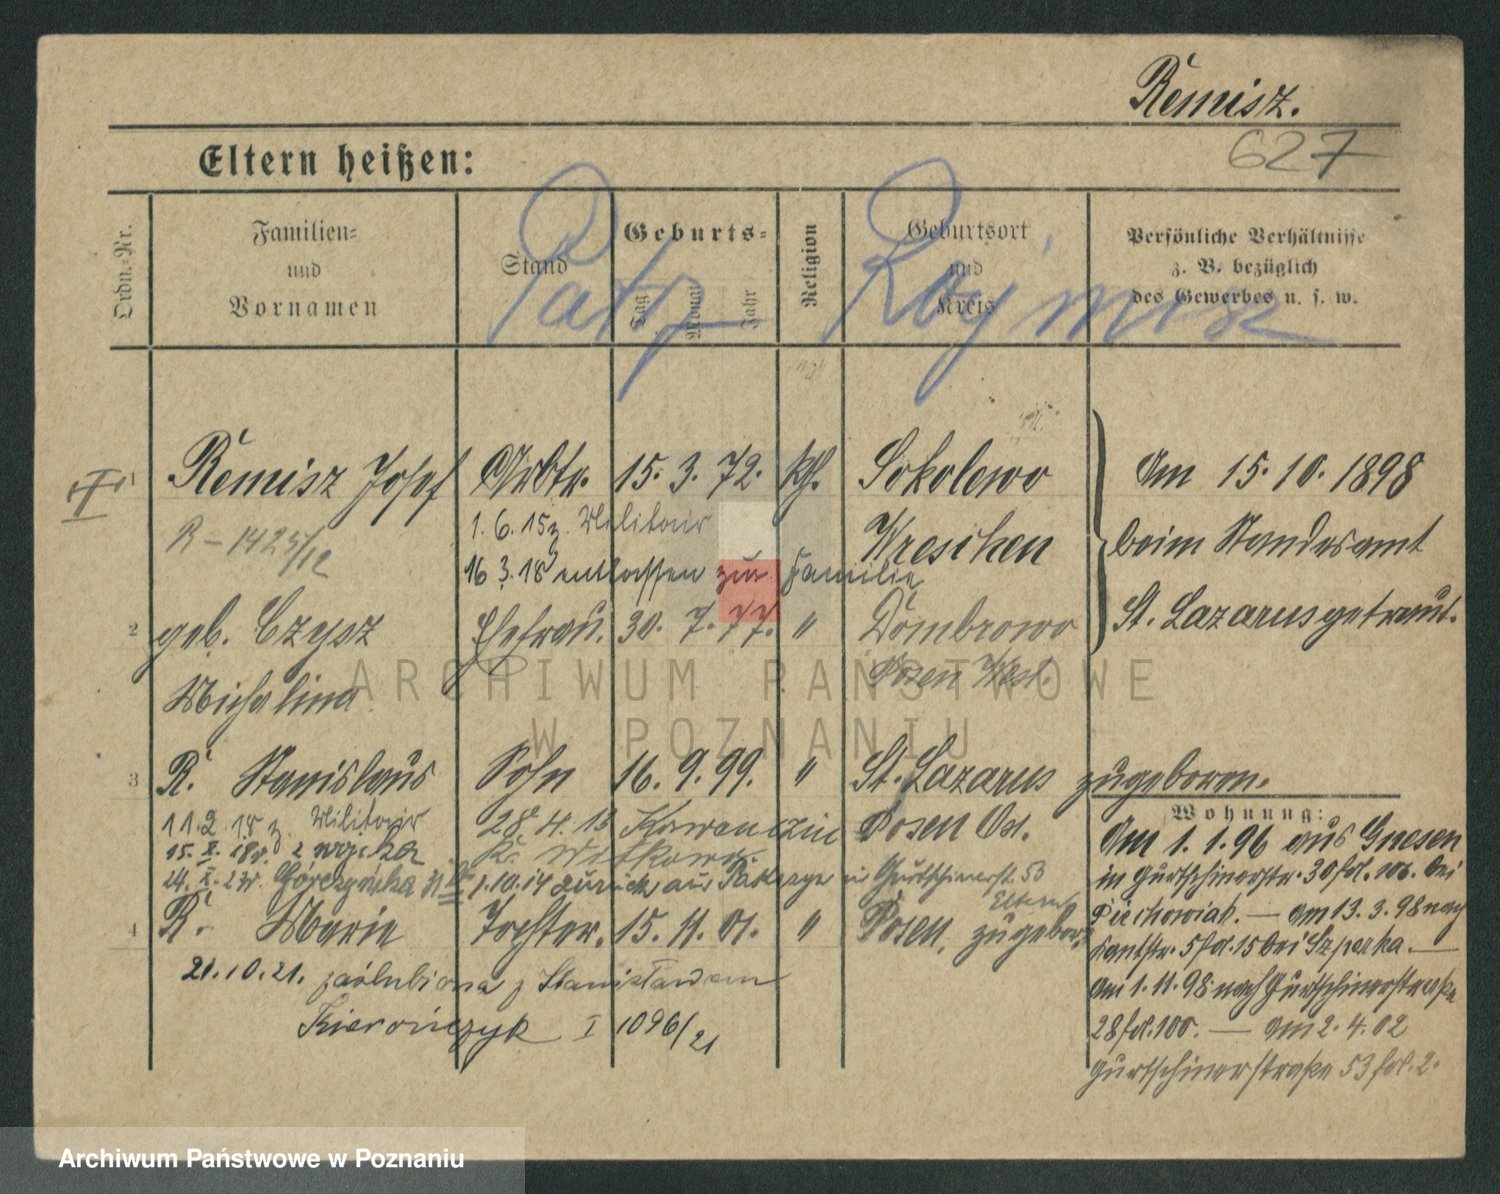 Remisz.
627
Eltern heißen:
Ordn.-Nr.
Familien- und Vornamen
Stand
Geburts-
Tag
Monat
Jahr
Religion
Geburtsort und Kreis
Persönliche Verhältnisse
z. B. bezüglich
des Gewerbes u. s. w.
Patz
1
Remisz Josef Arbtr. 15. 3. 72. kth. Sokolewo
Wreschen
Am 15. 10. 1898
beim Standesamt
St. Lazarus getraut.
R - 1425/12
1. 6. 15 z. Militair
16 3. 18 entlassen zur Familie
2
geb. Czysz Ehefrau. 30. 7. 77. " Dombrowo
Michalina Posen West.
3
R. Stanislaus Sohn 16. 9. 99. " St. Lazarus zugeboren.
Posen Ost.
11. 2. 18 z. Militair
28. 4. 13
Kr. Witkowo
1. 10. 14 zurück aus in Gurtschinerst. 53
Eltern
4
R. Marie Tochter. 15. 11. 01. " Posen, zugebor.
21. 10. 21. zaślubiona z Stanisławem
Kierończyk I 1096/21
Wohnung:
Am 1. 1. 96 aus Gnesen
in Gurtschinerstr. 30 fol. 106. bei
Piechowiak. — am 13. 3. 98 nach
Kantstr. 5 fol. 15 bei Szperka. —
am 1. 11. 98 nach Gurtschinerstraße
28 fol. 100. — am 2. 4. 02
Gurtschinerstraße 53 fol. 2.
ARCHIWUM PAŃSTWOWE
W POZNANIU
Archiwum Państwowe w Poznaniu